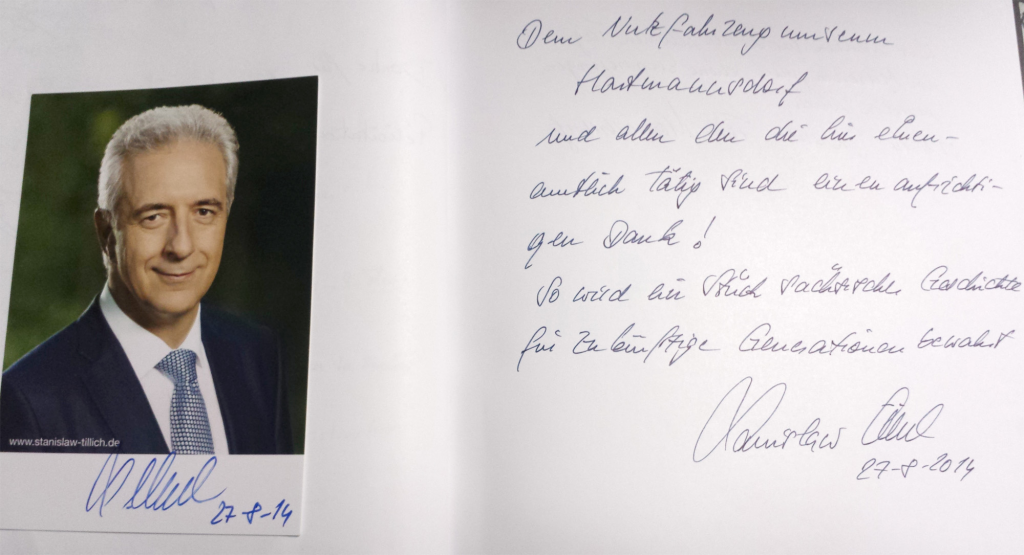 www.stanislaw-tillich.de
27-8-14
Dem Nutzfahrzeugmuseum
Hartmannsdorf
und allen den die hier ehren-
amtlich tätig sind einen aufrichti-
gen Dank!
So wird ein Stück sächsische Geschichte
für zukünftige Generationen bewahrt
Stanislaw Tillich
27-8-2014